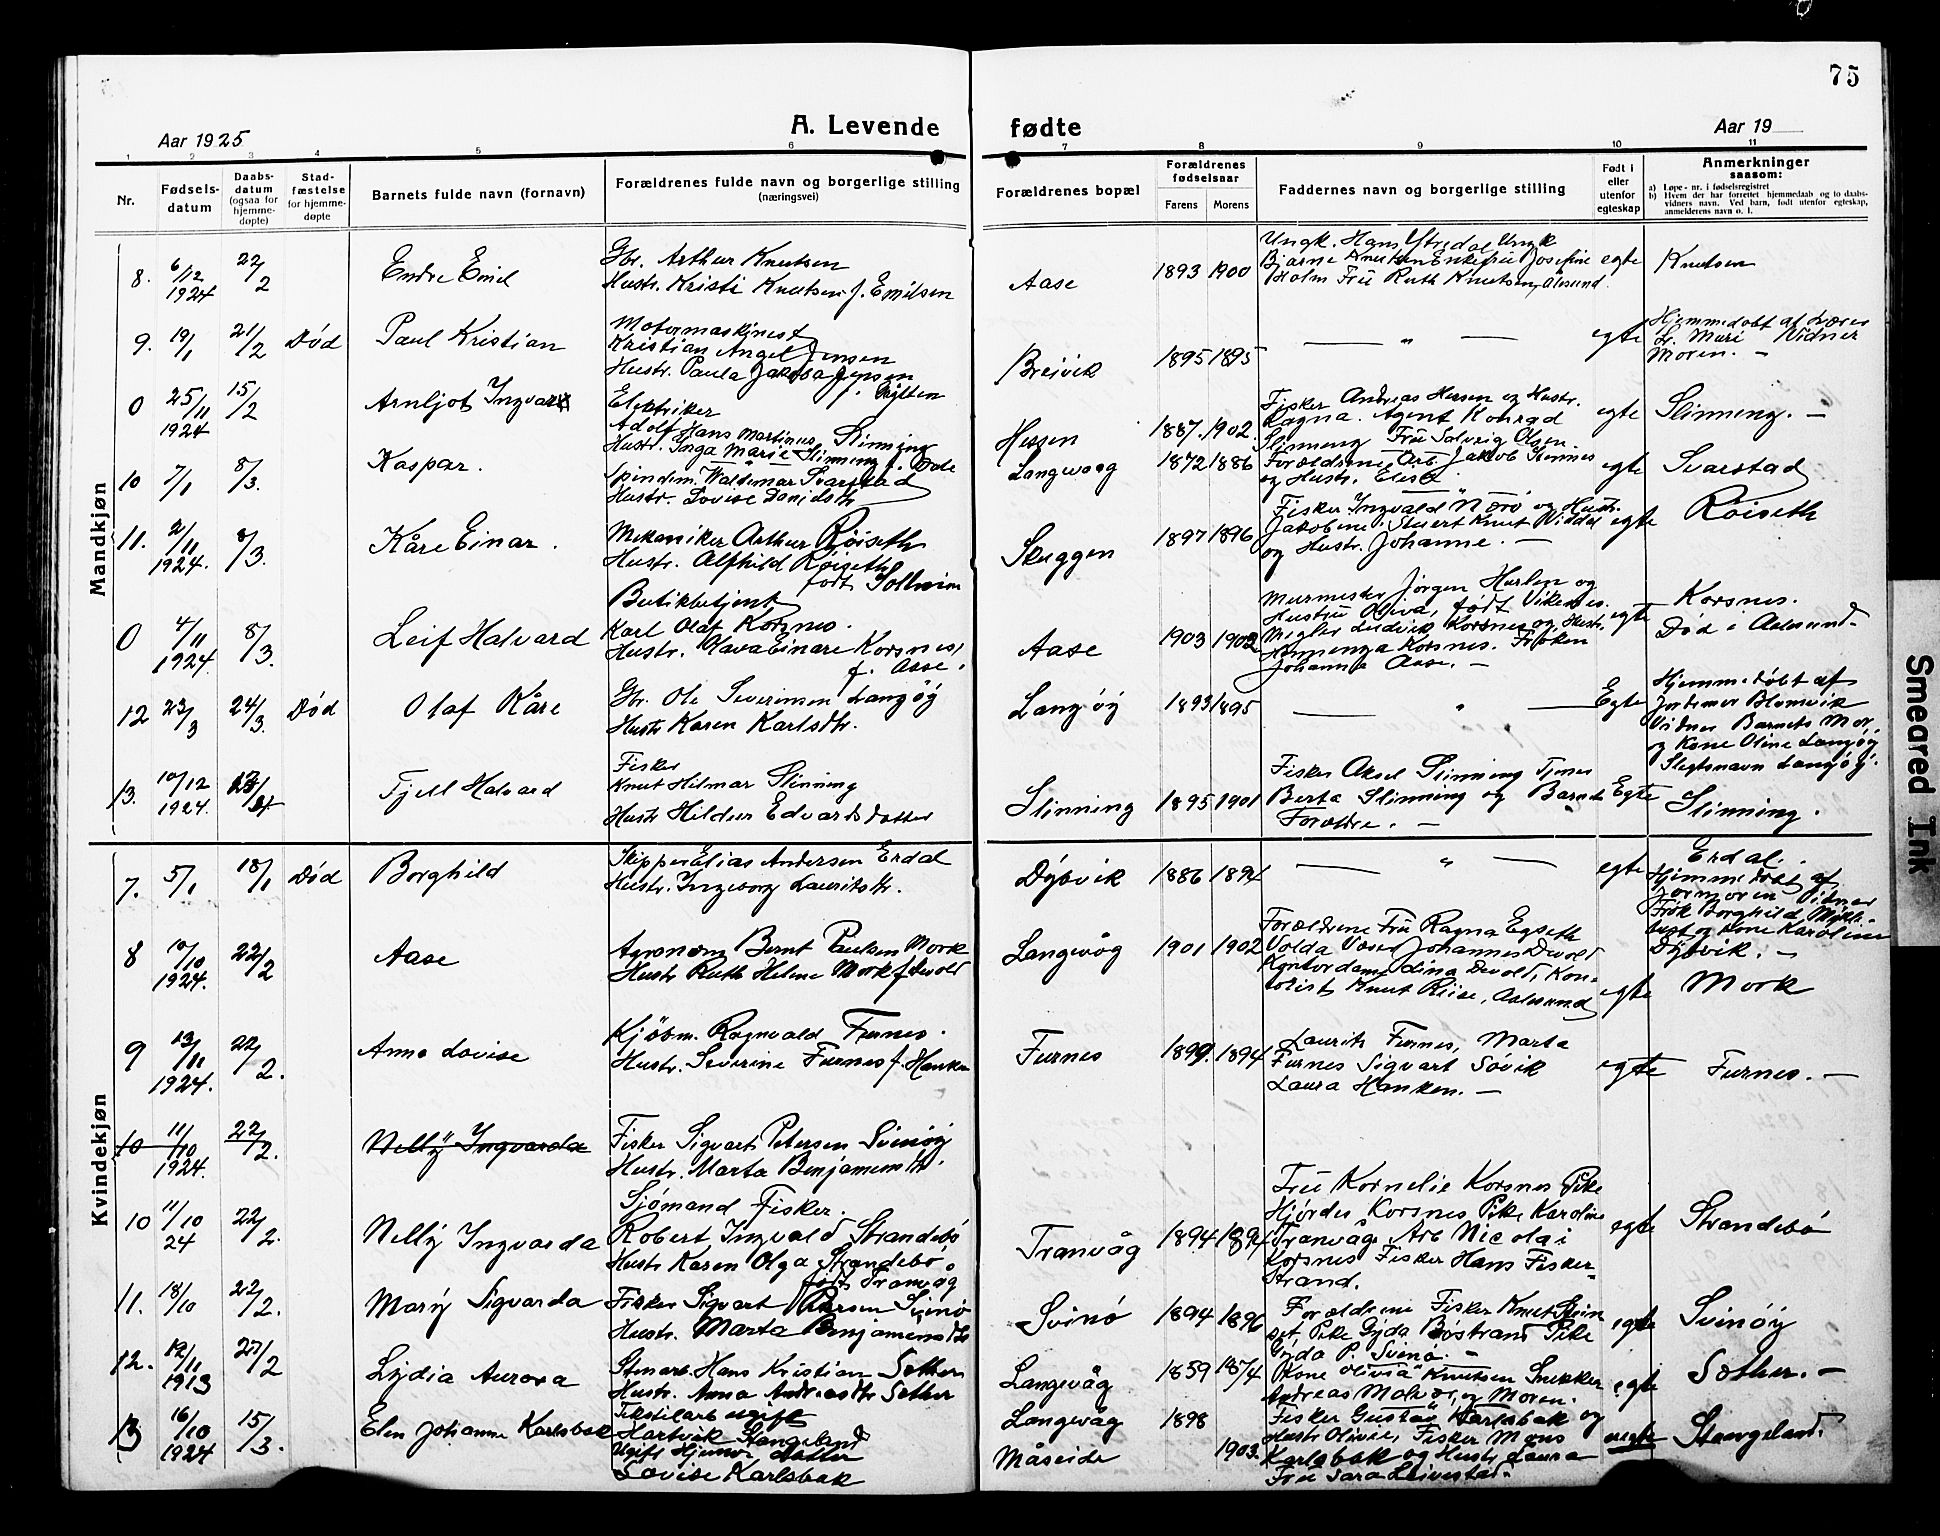 75
Aar 1925
A. Levende fødte
Aar 19
1 2 3 4 5 6 7 8 9 10 11
Nr.
Fødsels-
datum
Daabs-
datum
(ogsaa for
hjemme-
døpte)
Stad-
fæstelse
for hjemme-
døpte
Barnets fulde navn (fornavn)
Forældrenes fulde navn og borgerlige stilling
(næringsvei)
Forældrenes bopæl
Forældrenes
fødselsaar
Farens Morens
Faddernes navn og borgerlige stilling
Født i
eller
utenfor
egteskap
Anmerkninger
saasom:
a) Løpe-nr. i fødselsregistret
b) Hvem der har forrettet hjemmedaab og to daabs-
vidners navn. Ved barn, født utenfor egteskap,
anmelderens navn o. l.
Mandkjøn
8. 6/12 1924 22/2 Endre Emil
Gbr. Arthur Knutsen
Hustr. Kristi Knutsen f. Emilsen
Aase 1893 1900
Ungk. Hans Ytredal Ungk
Bjarne Knutsen Enkefru Josefine
Holm Frü Ruth Knutsen, Alesund.
egte Knutsen
9. 19/1 21/2 Död Paul Kristian
Motormaskinest
Kristian Angel Jensen
Hustr. Paula Jakoba Jensen
f. Myklen
Breivik 1895 1895
— " —
egte
Hjemmedöbt af Lærer
L. Muri Vidner
Moren. —
0 25/11 1924 15/2 Arnljot Ingvar
Elektriker
Adolf Hans Martinus Slinning
Hustr. Inga Marie Slinning f. Dale
Hessen 1887. 1902.
Fisker Andreas Hessen og Hustr.
Ragna. Agent Konrad
Slinning Frü Solveig Olsen.
egte Slinning. —
10 7/1 8/3. Kaspar.
Spindem. Waldemar Svarstad
Hustr. Lovise Danidsdtr
Langevaag 1872 1886
Forældrene Arb. Jakob Slinnes
og Hustr. Elise
egte Svarstad
11. 2/11 1924. 8/3. Kåre Einar.
Mekaniker Arthur Röiseth
Hustr. Alfhild Röiseth
födt Solheim
Skuggen 1897 1896
Fisker Ingvald Norö og Hustr.
Jakobine. Stuert Knut Viddal
og Hustr. Johanne. —
egte Röiseth
0 4/11 1924. 8/3. Leif Halvard
Butikbetjent
Karl Olaf Korsnes.
Hustr. Olava Einare Korsnes,
f. Aase.
Aase 1903 1902
Murmester Jörgen Herlen og
Hustru Oliva, födt Vikenes.
Megler Ludvik Korsnes og Hustr.
Korsnes. Fröken
Johanna Aase. —
egte Korsnes.
Död i Aalesund.
12 23/3 24/3. Död Olaf Kåre
Gbr. Ole Severinsen Langöÿ
Hustr Karen Karlsdtr.
Langöÿ 1893 1895
— " —
Egte
Hjemmedöbt af
Jordemor Blomvik
Vidner Barnets Mor,
og Kone Oline Langöÿ
Slegtsnavn Langöÿ.
13. 10/12 1924. Fjell Halvard
Fisker
Knut Hilmar Slinning
Hustr Hildur Edvardsdotter
Slinning 1895 1901
Fisker Aksel Slinning Tjener
Berta Slinning og Barnets
Forældre. —
Egte Slinning.
Kvindekjøn
7. 5/1 18/1 Död Borghild
Skipper Elias Andersen Erdal
Hustr. Ingeborg Lauritsdtr.
Dÿbvik 1886 1894
— " —
egte Erdal.
Hjemmedöbt af
Jormoren Vidner
Frök Borghild
og Kone Karoline
Dÿbvik. —
8 10/10 1924. 22/2 Aase
Agronom Bernt Paulsen Mork
Hustr Ruth Helene Mork f. Devold
Langevåg 1901 1902
Forældrene Frü Ragna Egseth
Volda Johannes Devold
Kontordame Lina Devold, Kon-
torist Knut Riise, Aalesund
egte Mork
9 13/11 1924. 22/2. Anna Lovise
Kjöbm. Ragnvald Furnes.
Hustr. Severine Furnes f. Hanken
Furnes 1899. 1894
Laurits Furnes, Marta
Furnes Sigvart Sövik
Laura Hanken. —
egte Furnes. —
10 11/10 1924. 22/2. Nellÿ Ingvarda
Fisker Sigvart Petersen Svinöÿ
Hustr. Marta Benjaminsdtr.
10 11/10 24 22/2. Nellÿ Ingvarda
Sjömand Fisker.
Robert Ingvald Strandebö
Hustr Karen Olga Strandebö,
födt Tranvåg
Tranvåg 1894 1894
Frü Kornelie Korsnes Pike
Hjördis Korsnes Pike Karoline
Tranvåg Arb Nicolai
Korsnes Fisker Hans Fisker-
Strand.
egte Strandebö
11. 18/10 22/2. Marÿ Sigvarda
Fisker Sigvart Petersen Svinö
Hustr. Marta Benjaminsdtr
Svinö 1894 1896
Forældrene Fisker Knut Stein
set, Pike Gÿda Böstrand Pike
Gÿda P. Svinö. —
egte Svinöÿ
12. 12/11 1913 22/2 Lÿdia Aurora
Stenarb. Hans Kristian Sæther
Hustr. Anna Andreasdtr Sæther
Langevåg 1859 1874
Kone Olivia Knutsen Snekker
Andreas Molvær, og Moren.
egte Sæther. —
13 16/10 1924 15/3. Elen Johanne Karlsbak
Tekstilarb ugift
Hartvik Stangeland
Ugift Hjemme Datter
Lovise Karlsbak
Langevåg 1898
Måseide 1903.
Fisker Gustav Karlsbak og
Hustr Olivie, Fisker Mons
Karlsbak og Hustr Laura
Frü Sara Leivestad.
uegte Stangeland.
Smeared Ink